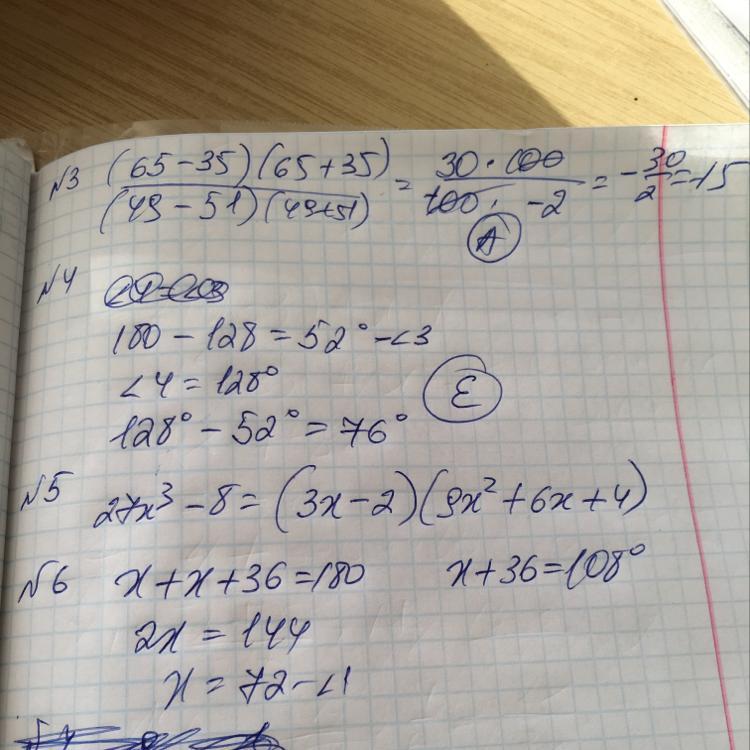 №3 (65-35)(65+35) / (49-51)(49+51) = 30·100 / 100·-2 = -30/2 = -15
А
№4
180-128=52°-∠3
∠4=128°
Е
128°-52°=76°
№5 27x³-8=(3x-2)(9x²+6x+4)
№6 x+x+36=180 x+36=108°
2x=144
x=72-∠1